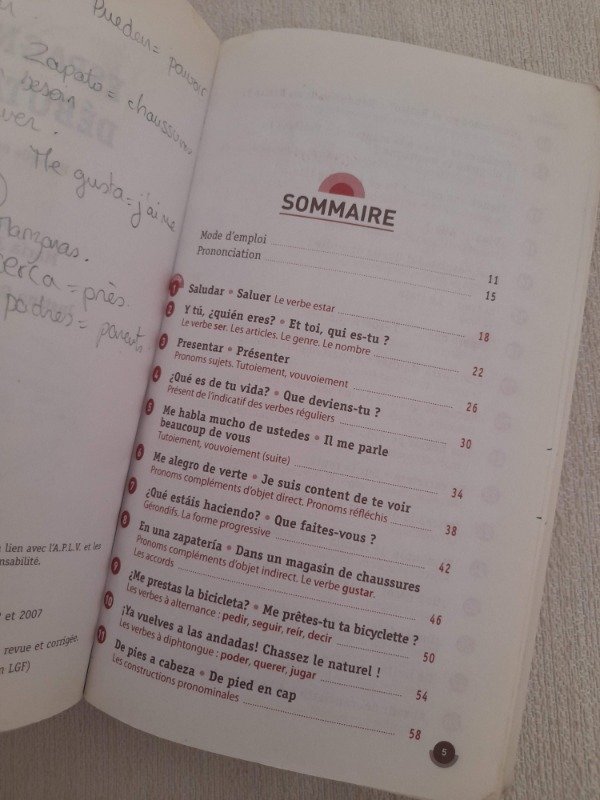 Pueden = pouvoir
Zapato = chaussures
besoin
Me gusta = j'aime
cerca = près.
padres = parents.
lien avec l'A.P.L.V. et les
et 2007
revue et corrigée.
LGF)
SOMMAIRE
Mode d'emploi 11
Prononciation 15
1 Saludar • Saluer Le verbe estar 18
2 Y tú, ¿quién eres? • Et toi, qui es-tu ?
Le verbe ser. Les articles. Le genre. Le nombre 22
3 Presentar • Présenter
Pronoms sujets. Tutoiement, vouvoiement 26
4 ¿Qué es de tu vida? • Que deviens-tu ?
Présent de l'indicatif des verbes réguliers 30
5 Me habla mucho de ustedes • Il me parle
beaucoup de vous
Tutoiement, vouvoiement (suite) 34
6 Me alegro de verte • Je suis content de te voir
Pronoms compléments d'objet direct. Pronoms réfléchis 38
7 ¿Qué estáis haciendo? • Que faites-vous ?
Gérondifs. La forme progressive 42
8 En una zapatería • Dans un magasin de chaussures
Pronoms compléments d'objet indirect. Le verbe gustar.
Les accords 46
9 ¿Me prestas la bicicleta? • Me prêtes-tu ta bicyclette ?
Les verbes à alternance : pedir, seguir, reír, decir 50
10 ¡Ya vuelves a las andadas! Chassez le naturel !
Les verbes à diphtongue : poder, querer, jugar 54
11 De pies a cabeza • De pied en cap
Les constructions pronominales 58
5